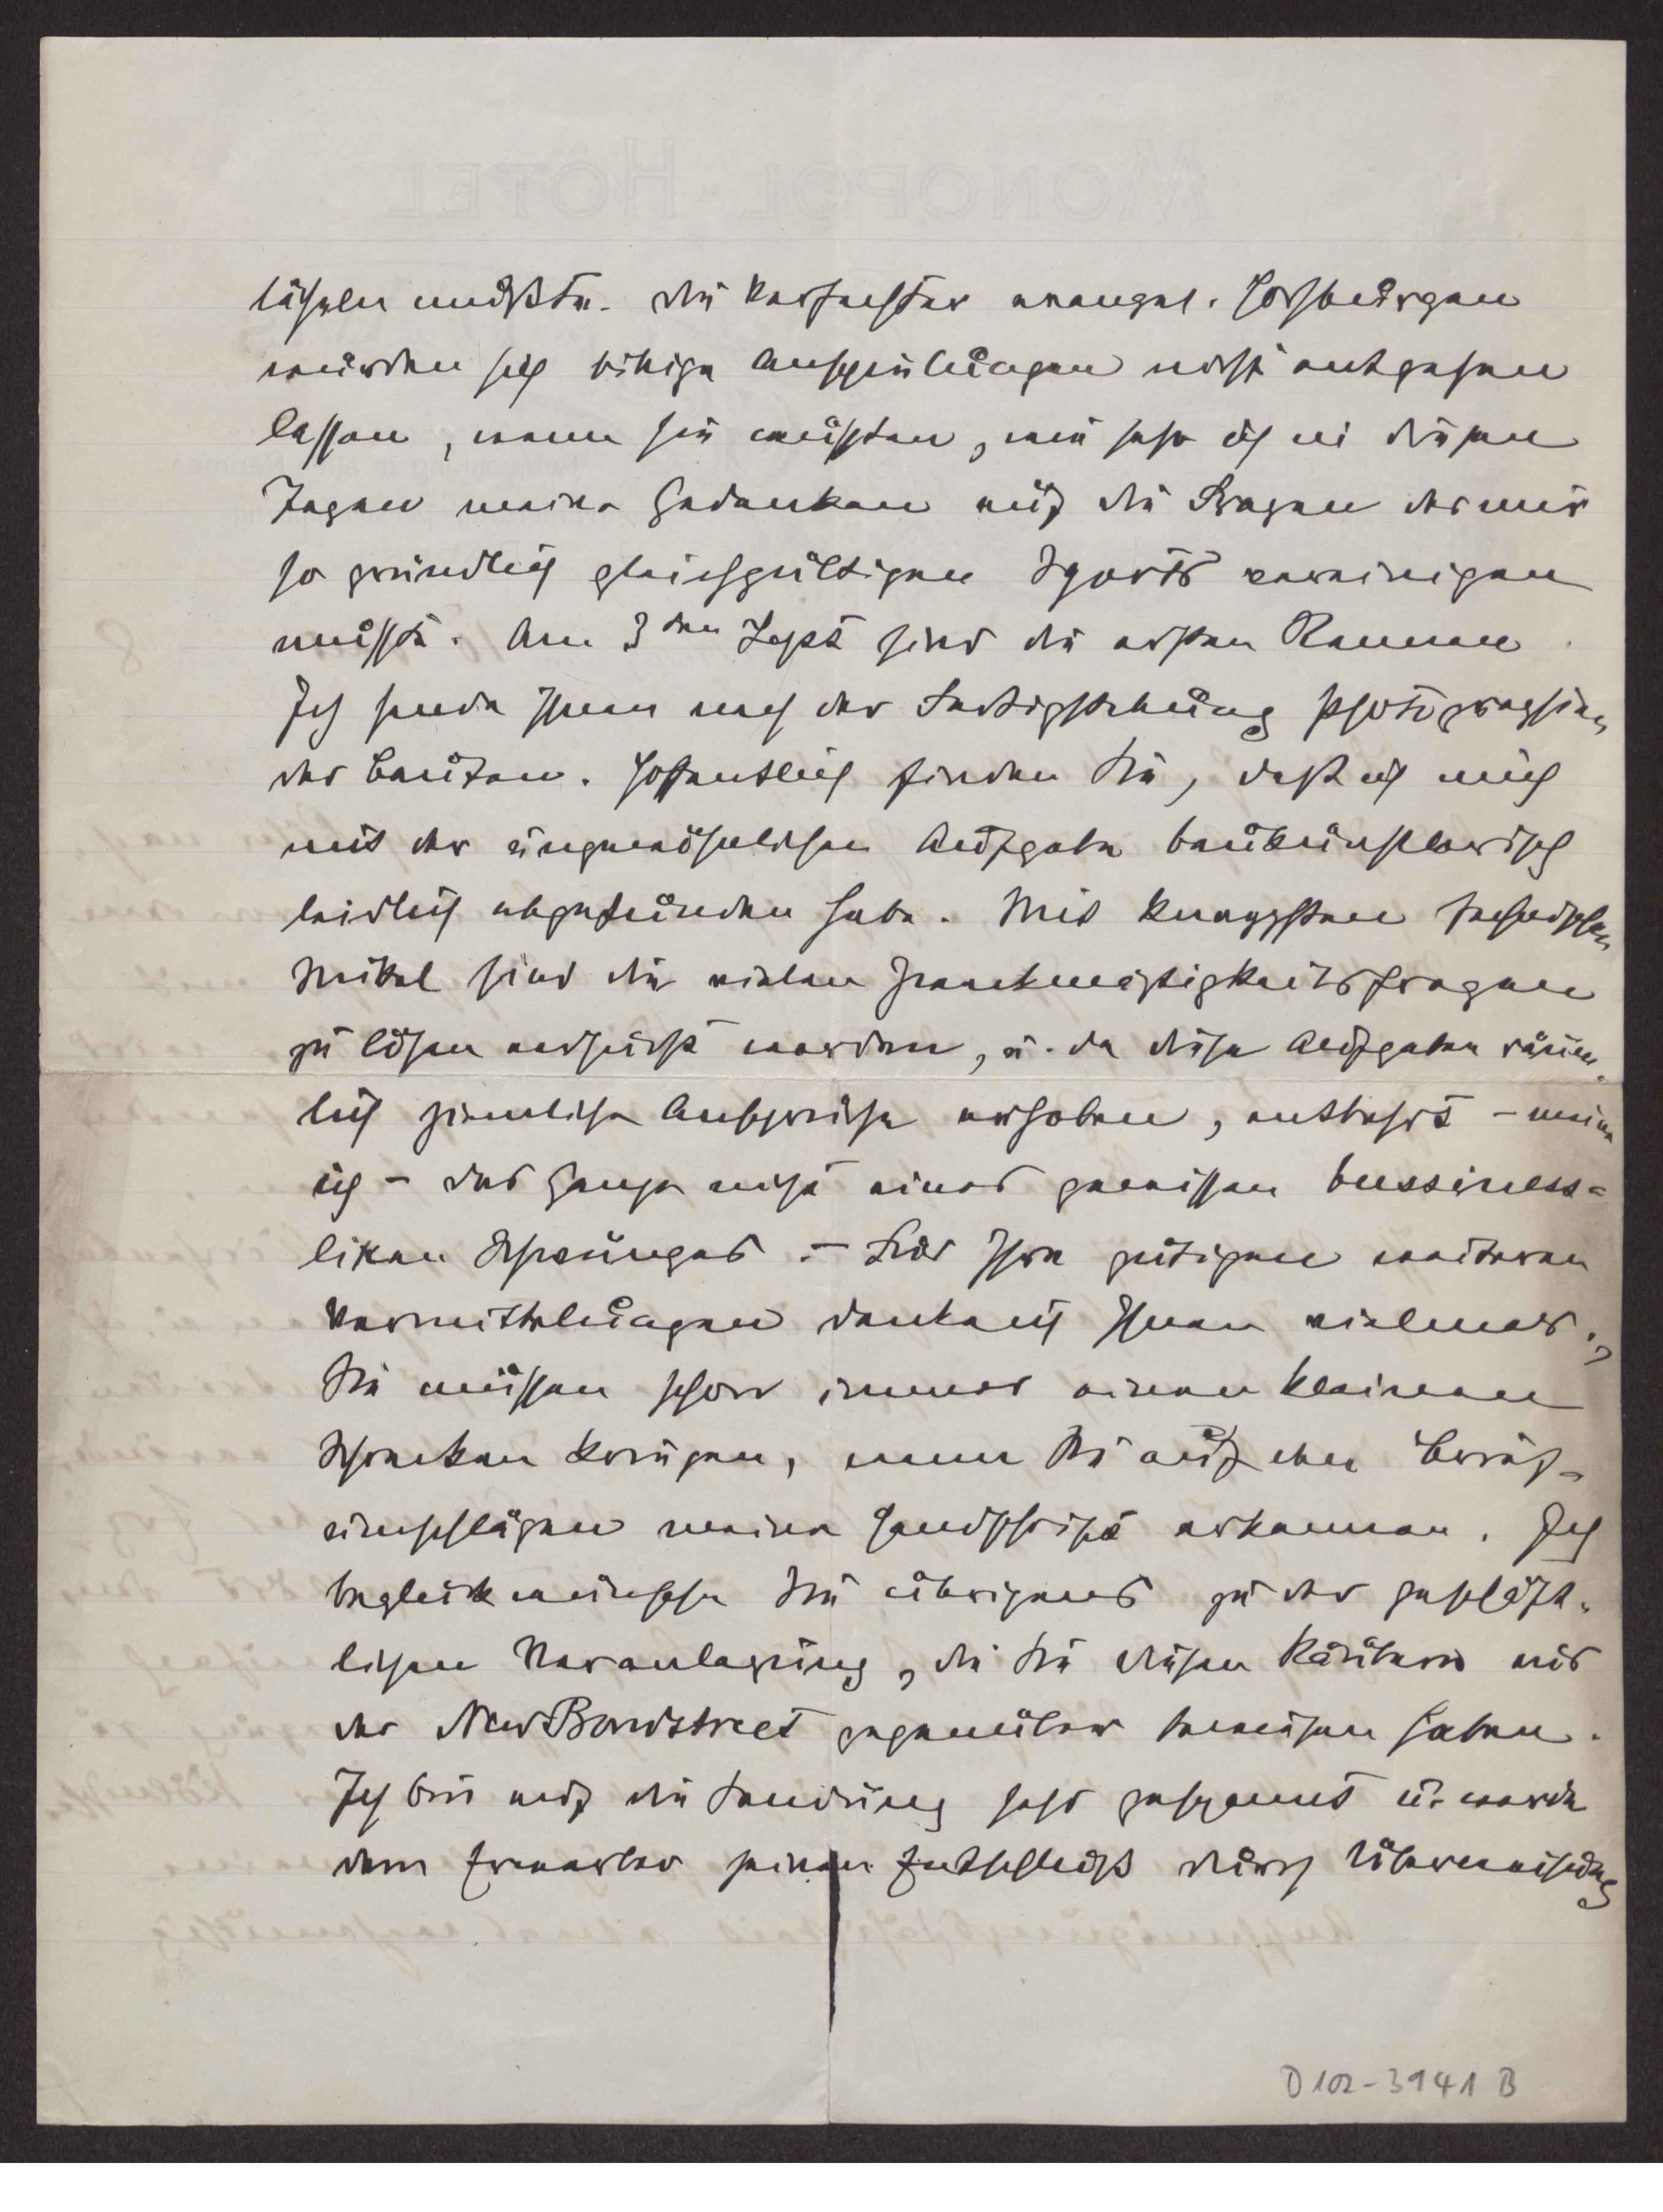 lächeln mußte. Die Verfechter evangel. Hochburgen
würden sich bissige Anspielungen nicht entgehen
lassen, wenn sie wüßten, wie sehr ich in diesen
Tagen meine Gedanken auf die Fragen des mir
so gründlich gleichgültigen Sports vereinigen
mußte. Am 3ten Sept sind die ersten Rennen.
Ich sende Ihnen nach der Fertigstellung Photographien
der Bauten. Hoffentlich finden Sie, daß ich mich
mit der ungewöhnlichen Aufgabe baukünstlerisch
leidlich abgefunden habe. Mit knappsten
Mittel sind die vielen Zweckmäßigkeitsfragen
zu lösen versucht worden, u. da diese Aufgaben räum-
lich ziemliche Ansprüche erhoben, entbehrt – meine
ich – das Ganze nicht eines gewissen bussiness-
liken Schwunges. – Für Ihre gütigen weiteren
Vermittelungen danke ich Ihnen vielmals.,
Sie müssen schon immer einen kleinen
Schrecken kriegen, wenn Sie auf den Brief-
umschlägen meine Handschrift erkennen. Ich
beglückwünsche Sie übrigens zu der geschäft-
lichen Veranlagung, die Sie diesen Räubern aus
der New Bondstreet gegenüber bewiesen haben.
Ich bin auf die Sendung sehr gespannt u. werde
dem Erwerber seinen Entschluß durch Überweisung
MONOPOL-HÔTEL
D 102-3941 B